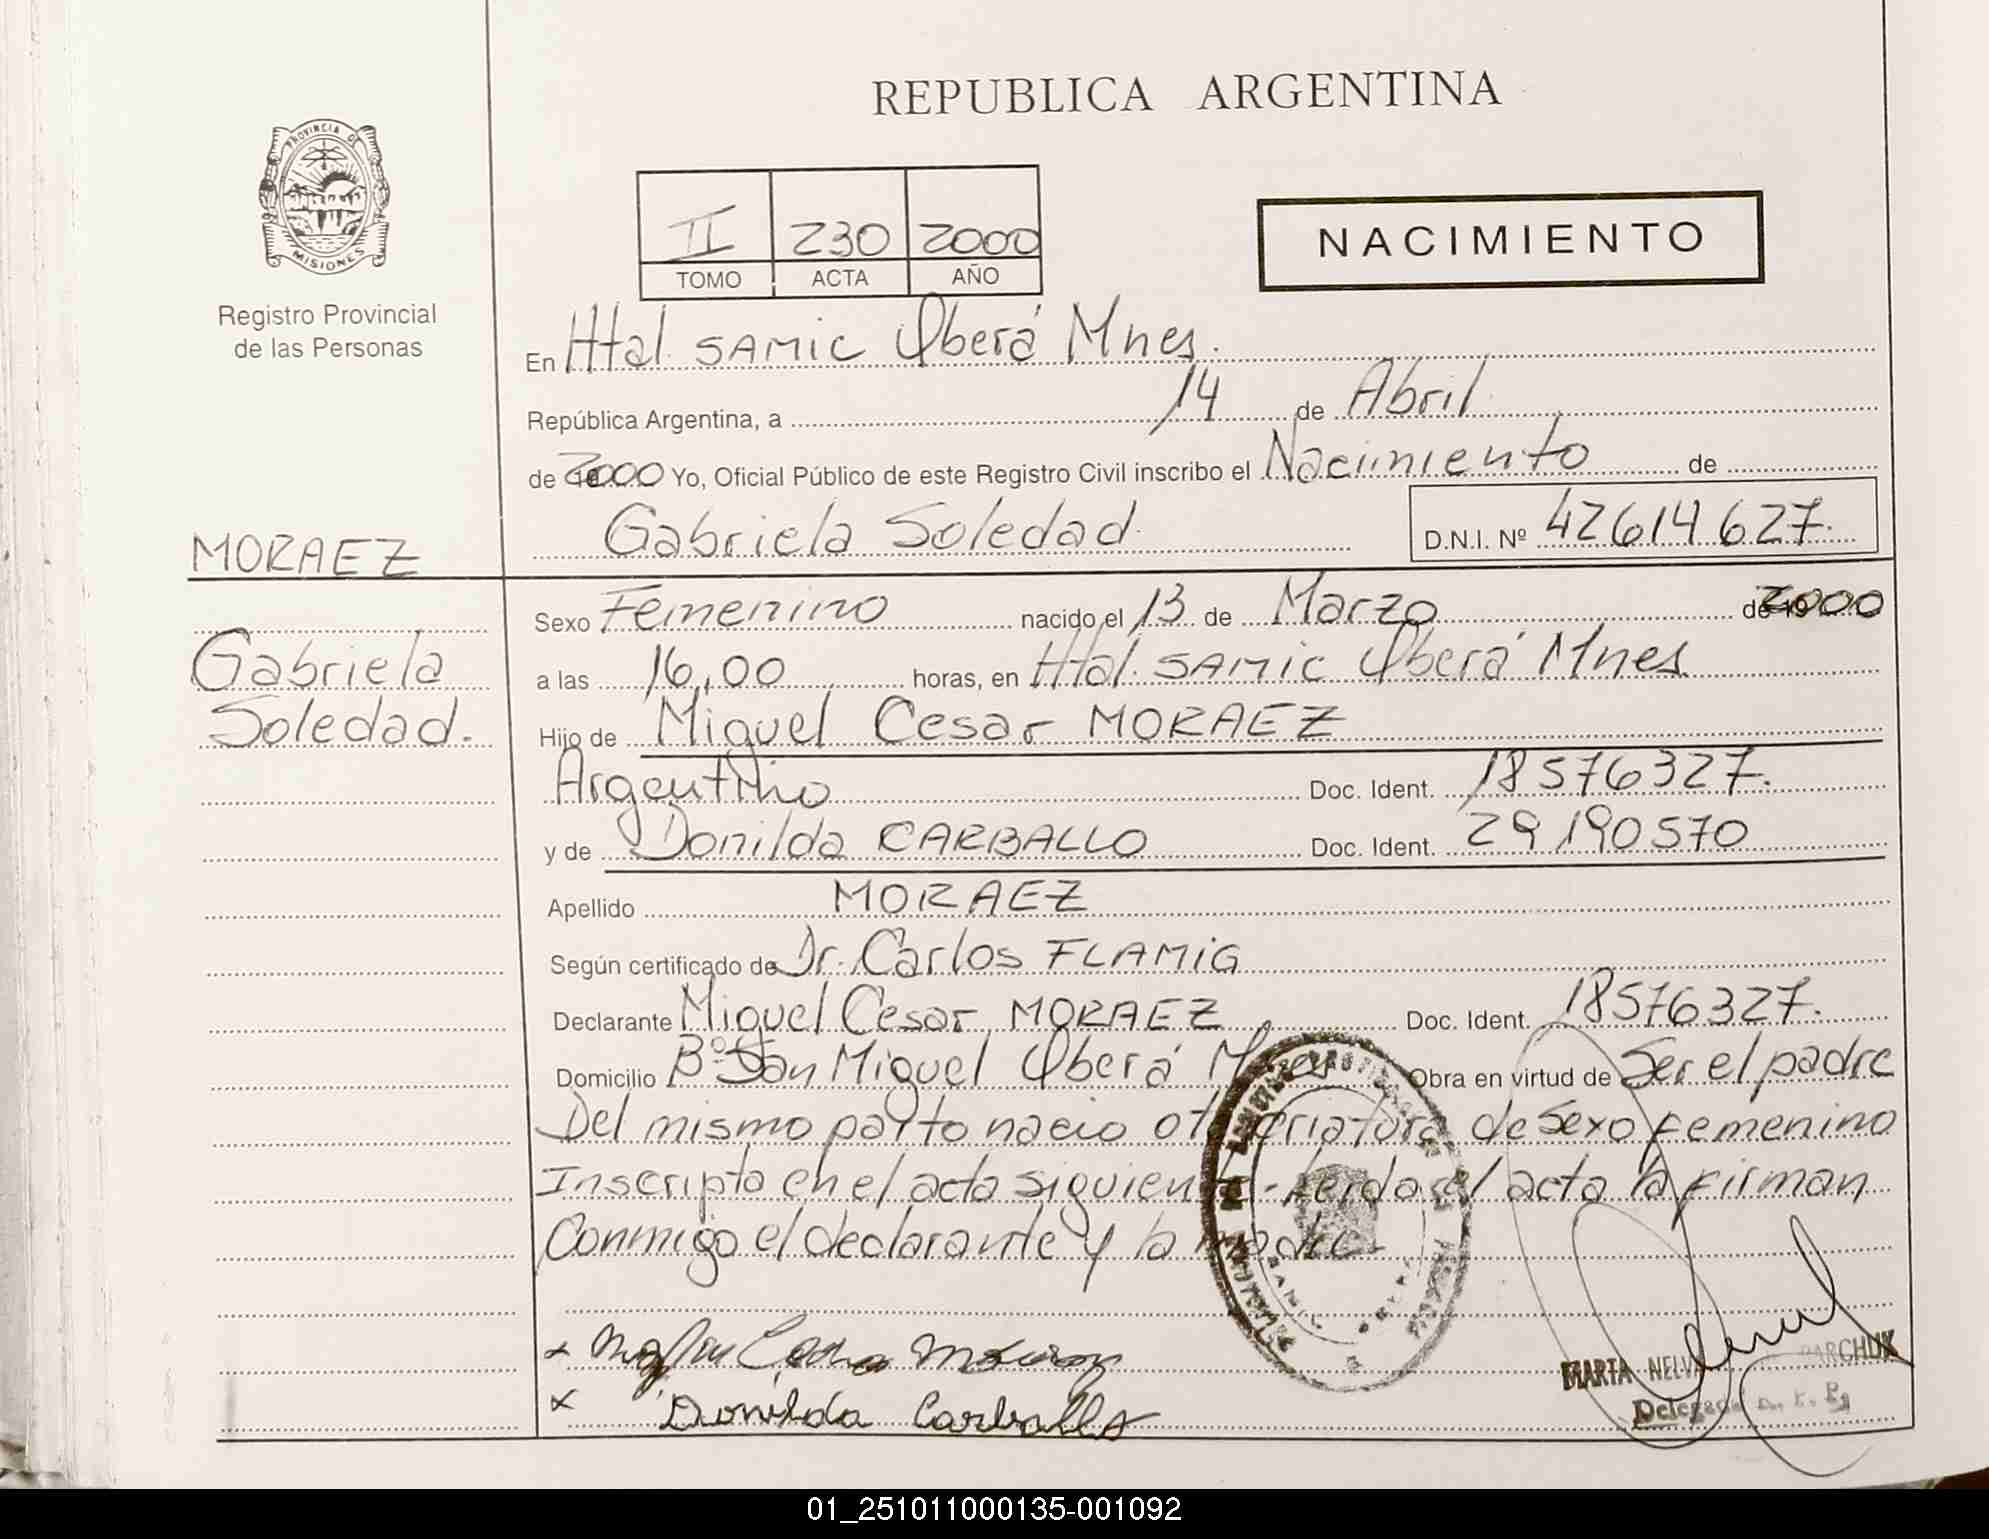 REPUBLICA ARGENTINA
PROVINCIA DE
MISIONES
Registro Provincial
de las Personas
II 230 2000
TOMO ACTA AÑO
NACIMIENTO
En Htal. SAMIC Oberá Mnes.
República Argentina, a 14 de Abril
de 2000 Yo, Oficial Público de este Registro Civil inscribo el Nacimiento de
Gabriela Soledad D.N.I. Nº 42614627.
MORAEZ
Gabriela
Soledad.
Sexo Femenino nacido el 13 de Marzo de 19 2000
a las 16,00 horas, en Htal. SAMIC Oberá Mnes
Hijo de Miguel Cesar MORAEZ
Argentino Doc. Ident. 18576327.
y de Donilda CARBALLO Doc. Ident. 29190570
Apellido MORAEZ
Según certificado de Dr. Carlos FLAMIG
Declarante Miguel Cesar MORAEZ Doc. Ident. 18576327.
Domicilio Bº San Miguel Oberá Mnes Obra en virtud de Ser el padre
Del mismo parto nacio otra criatura de sexo femenino
Inscripto en el acta siguiente - Leida el acta la firman
Conmigo el declarante y la madre.
x Miguel Cesar
x Donilda Carballo
MARTA NELV PARCHUK
Delegada
01_251011000135-001092